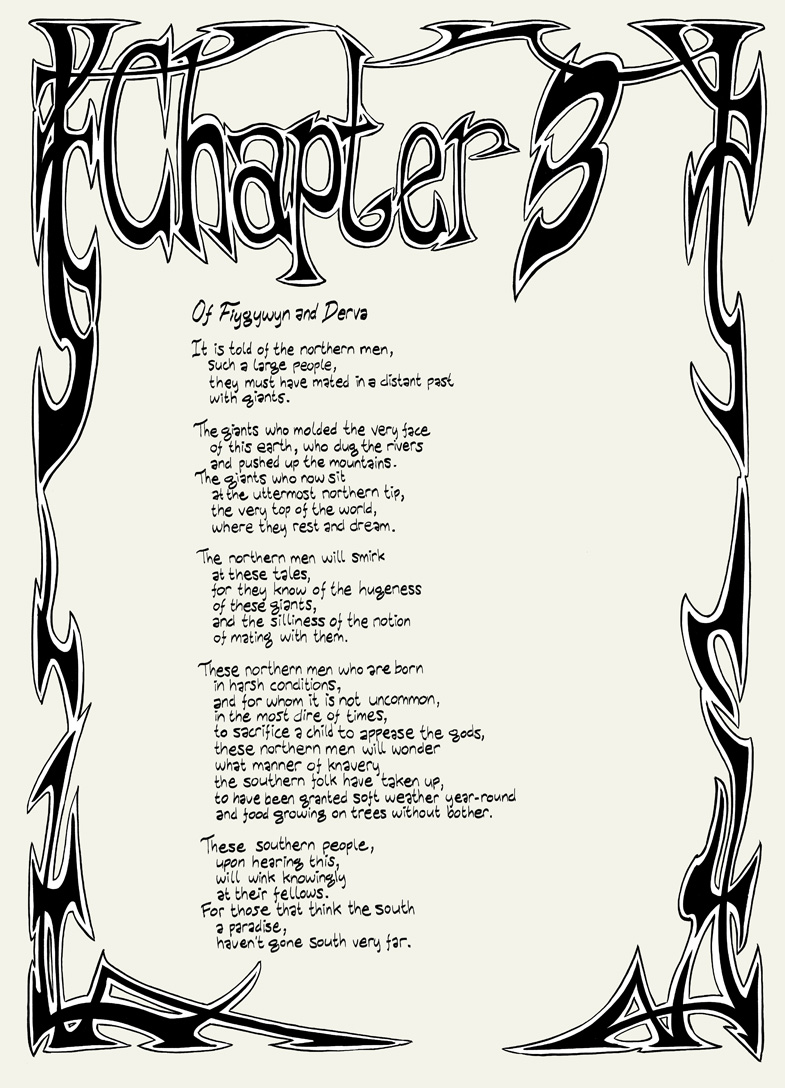 Chapter 3
Of Fiygywyn and Derva
It is told of the northern men,
such a large people,
they must have mated in a distant past
with giants.
The giants who molded the very face
of this earth, who dug the rivers
and pushed up the mountains.
The giants who now sit
at the uttermost northern tip,
the very top of the world,
where they rest and dream.
The northern men will smirk
at these tales,
for they know of the hugeness
of these giants,
and the silliness of the notion
of mating with them.
These northern men who are born
in harsh conditions,
and for whom it is not uncommon,
in the most dire of times,
to sacrifice a child to appease the gods,
these northern men will wonder
what manner of knavery
the southern folk have taken up,
to have been granted soft weather year-round
and food growing on trees without bother.
These southern people,
upon hearing this,
will wink knowingly
at their fellows.
For those that think the south
a paradise,
haven't gone south very far.